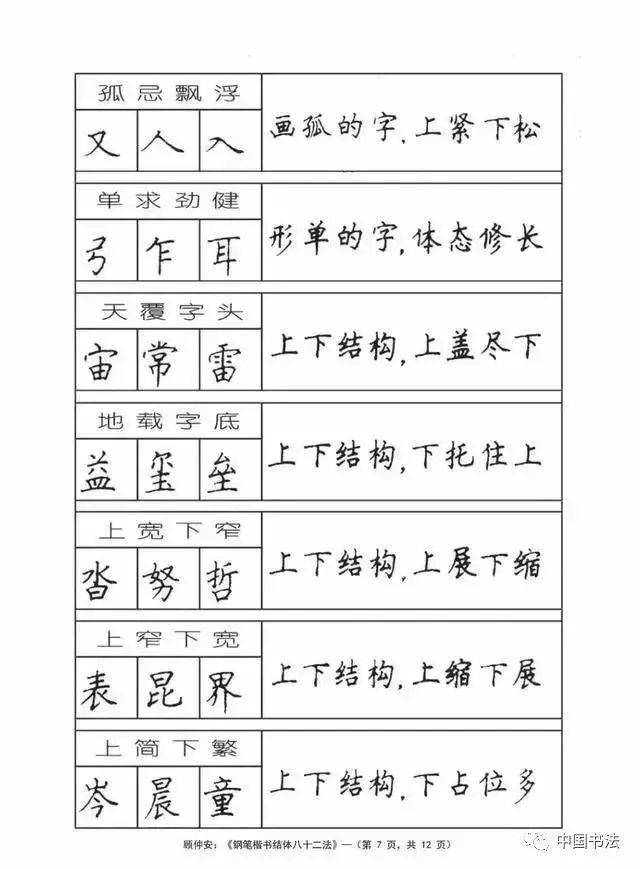 孤忌飘浮
又人入
画孤的字,上紧下松
单求劲健
弓乍耳
形单的字,体态修长
天覆字头
宙常雷
上下结构,上盖尽下
地载字底
益玺垒
上下结构,下托住上
上宽下窄
沓努哲
上下结构,上展下缩
上窄下宽
表昆界
上下结构,上缩下展
上简下繁
岑晨童
上下结构,下占位多
顾仲安：《钢笔楷书结体八十二法》—（第 7 页，共 12 页）
中国书法